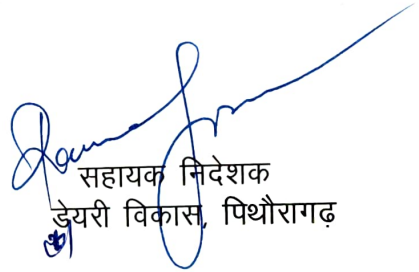 सहायक निदेशक
डेयरी विकास, पिथौरागढ़